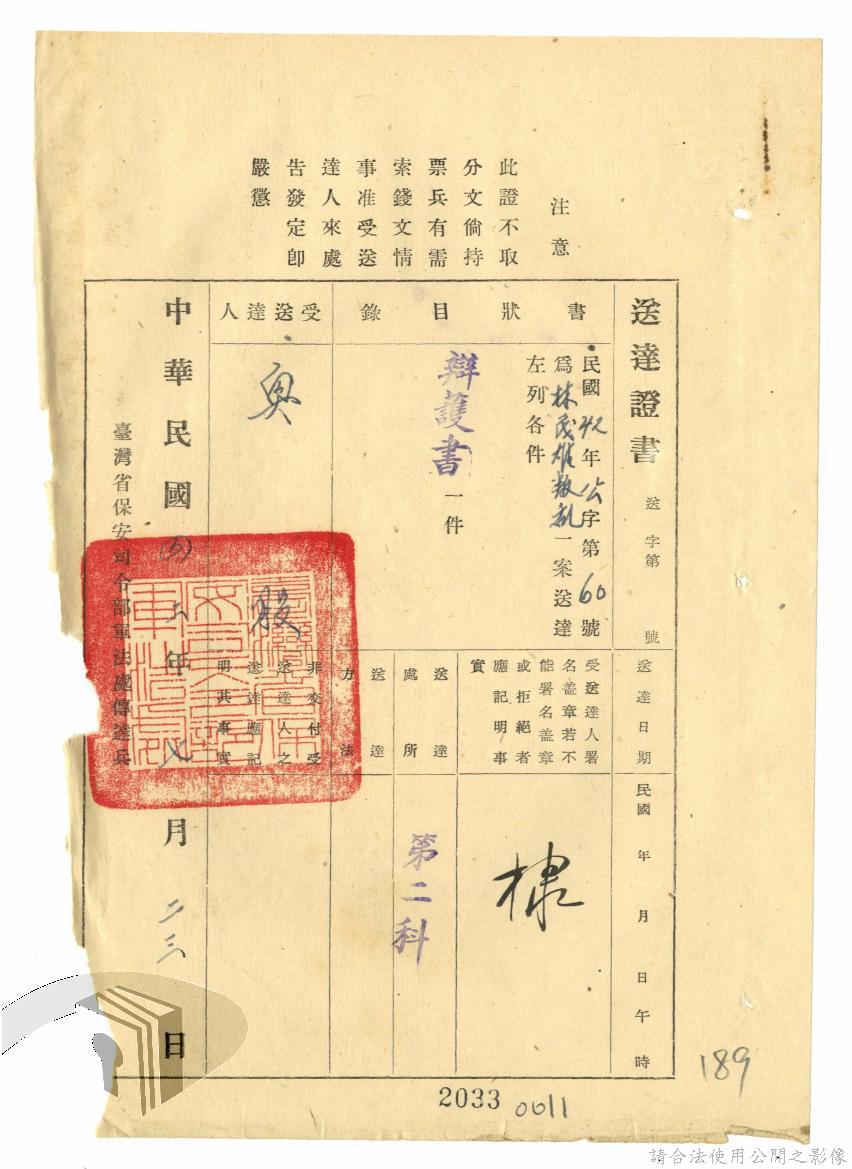 注意
此證不取
分文倘持
票兵有需
索錢文情
事准受送
達人來處
告發定卽
嚴懲
送達證書
送 字第 號
書狀目錄
民國42年公字第60號
爲林茂雄叛乱一案送達
左列各件
辯護書一件
受送達人
送達日期
民國 年 月 日午 時
受送達人署
名盖章若不
能署名盖章
或拒絕者
應記明事
實
棣
送達處所
第二科
送達方法
非交付受
送達人之
送達應記
明其事實
中華民國 年 月二三日
臺灣省保安司令部軍法處傳達兵
189
2033
0011
請合法使用公開之影像